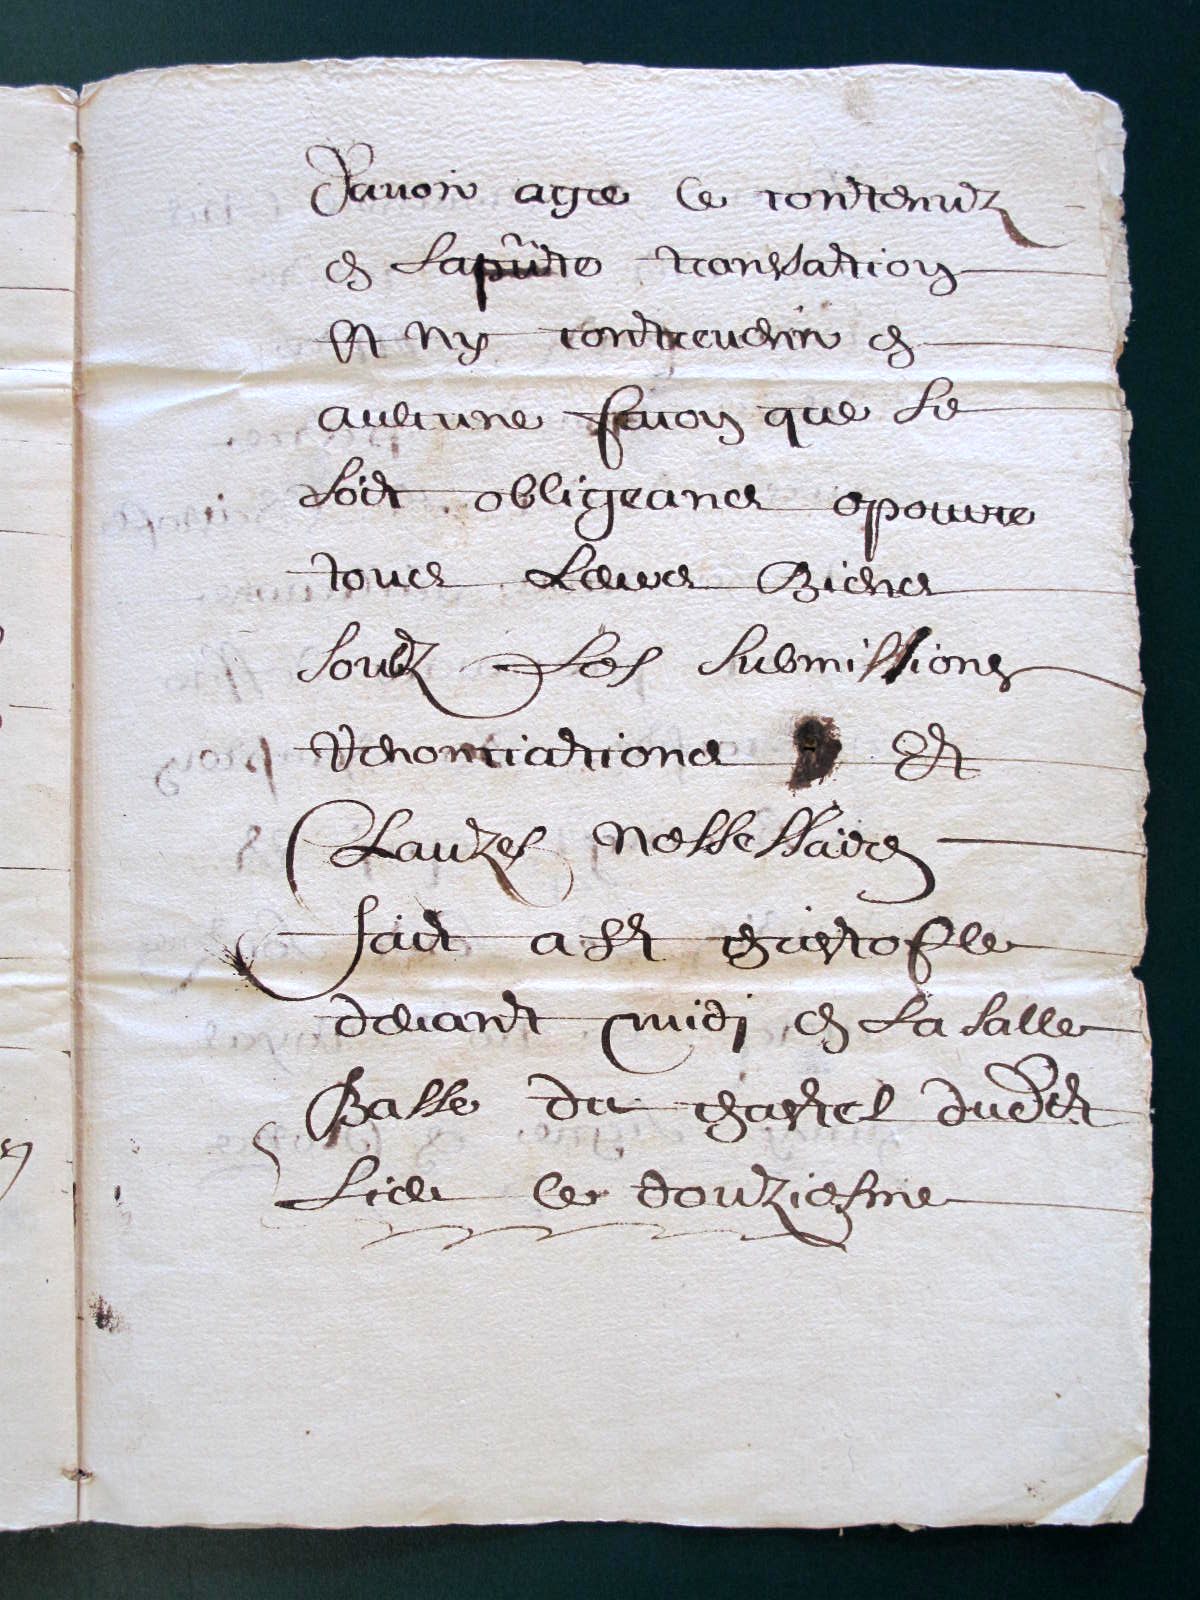 Davoir agre le contenuz
en la pnte transaction
et ny contrevenir en
aulcune facon que se
soit obligeans a pouvre
tous leurs biens
soubz les submissions
renonciations et
clauzes nessessaires
fait a st christofle
devant midi en la salle
basse du chastel dudit
lieu le douziesme